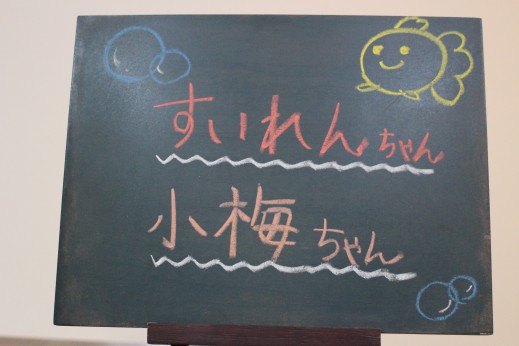 すいれんちゃん
小梅ちゃん